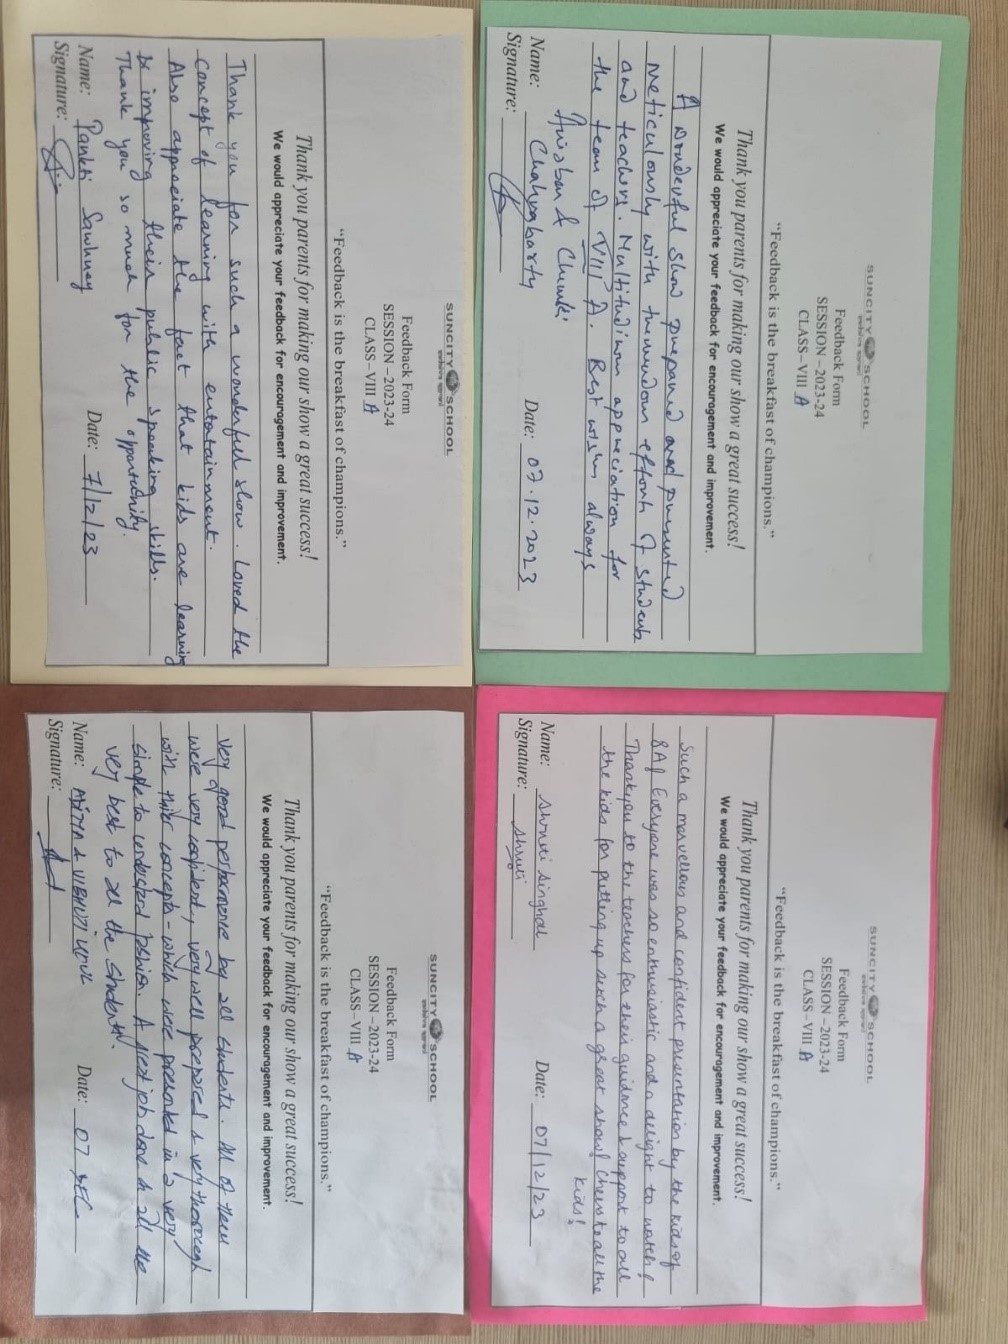 SUNCITY SCHOOL
Feedback Form
SESSION – 2023-24
CLASS – VIII A
“Feedback is the breakfast of champions.”
Thank you parents for making our show a great success!
We would appreciate your feedback for encouragement and improvement.
Thank you for such a wonderful show. Loved the
concept of learning with entertainment.
Also appreciate the fact that kids are learning
improving their public speaking skills.
Thank you so much for the opportunity.
Name: Pankti Sawhney Date: 7/12/23
Signature:
SUNCITY SCHOOL
Feedback Form
SESSION – 2023-24
CLASS – VIII A
“Feedback is the breakfast of champions.”
Thank you parents for making our show a great success!
We would appreciate your feedback for encouragement and improvement.
A wonderful show prepared and presented
meticulously with tremendous efforts of students
and teachers. Multitudinum appreciation for
the team of VIII A. Best wishes always
Anirban & Chumki
Name: Chakraborty Date: 07.12.2023
Signature:
SUNCITY SCHOOL
Feedback Form
SESSION – 2023-24
CLASS – VIII A
“Feedback is the breakfast of champions.”
Thank you parents for making our show a great success!
We would appreciate your feedback for encouragement and improvement.
Very good performance by all students. All of them
were very confident, very well prepared & very thorough
with their concepts - which were presented in a very
simple to understand fashion. A great job done & all the
very best to all the students!
Name: & VIBHUTI Date: 07 DEC
Signature:
SUNCITY SCHOOL
Feedback Form
SESSION – 2023-24
CLASS – VIII A
“Feedback is the breakfast of champions.”
Thank you parents for making our show a great success!
We would appreciate your feedback for encouragement and improvement.
Such a marvellous and confident presentation by the kids of
8A! Everyone was so enthusiastic and a delight to watch!
Thankyou to the teachers for their guidance & support to all
the kids for putting up such a great show! Cheers to all the
kids!
Name: Shruti Singhal Date: 07/12/23
Signature: Shruti